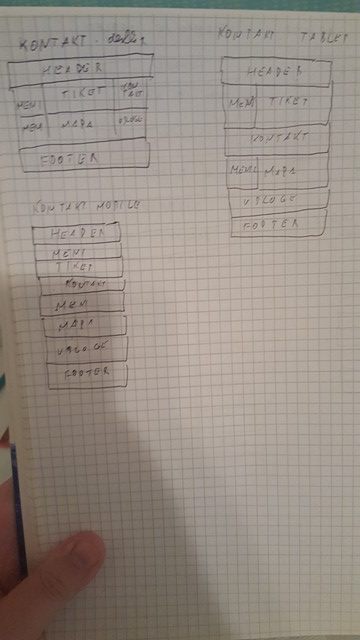 KONTAKT
HEADER
MENI TIKET KONTAKT
MENI MAPA
FOOTER
KONTAKT TABLET
HEADER
MENI TIKET
KONTAKT
MENI MAPA
USLOGE
FOOTER
KONTAKT MOBILE
HEADER
MENI
TIKET
KONTAKT
MENI
MAPA
USLOGE
FOOTER